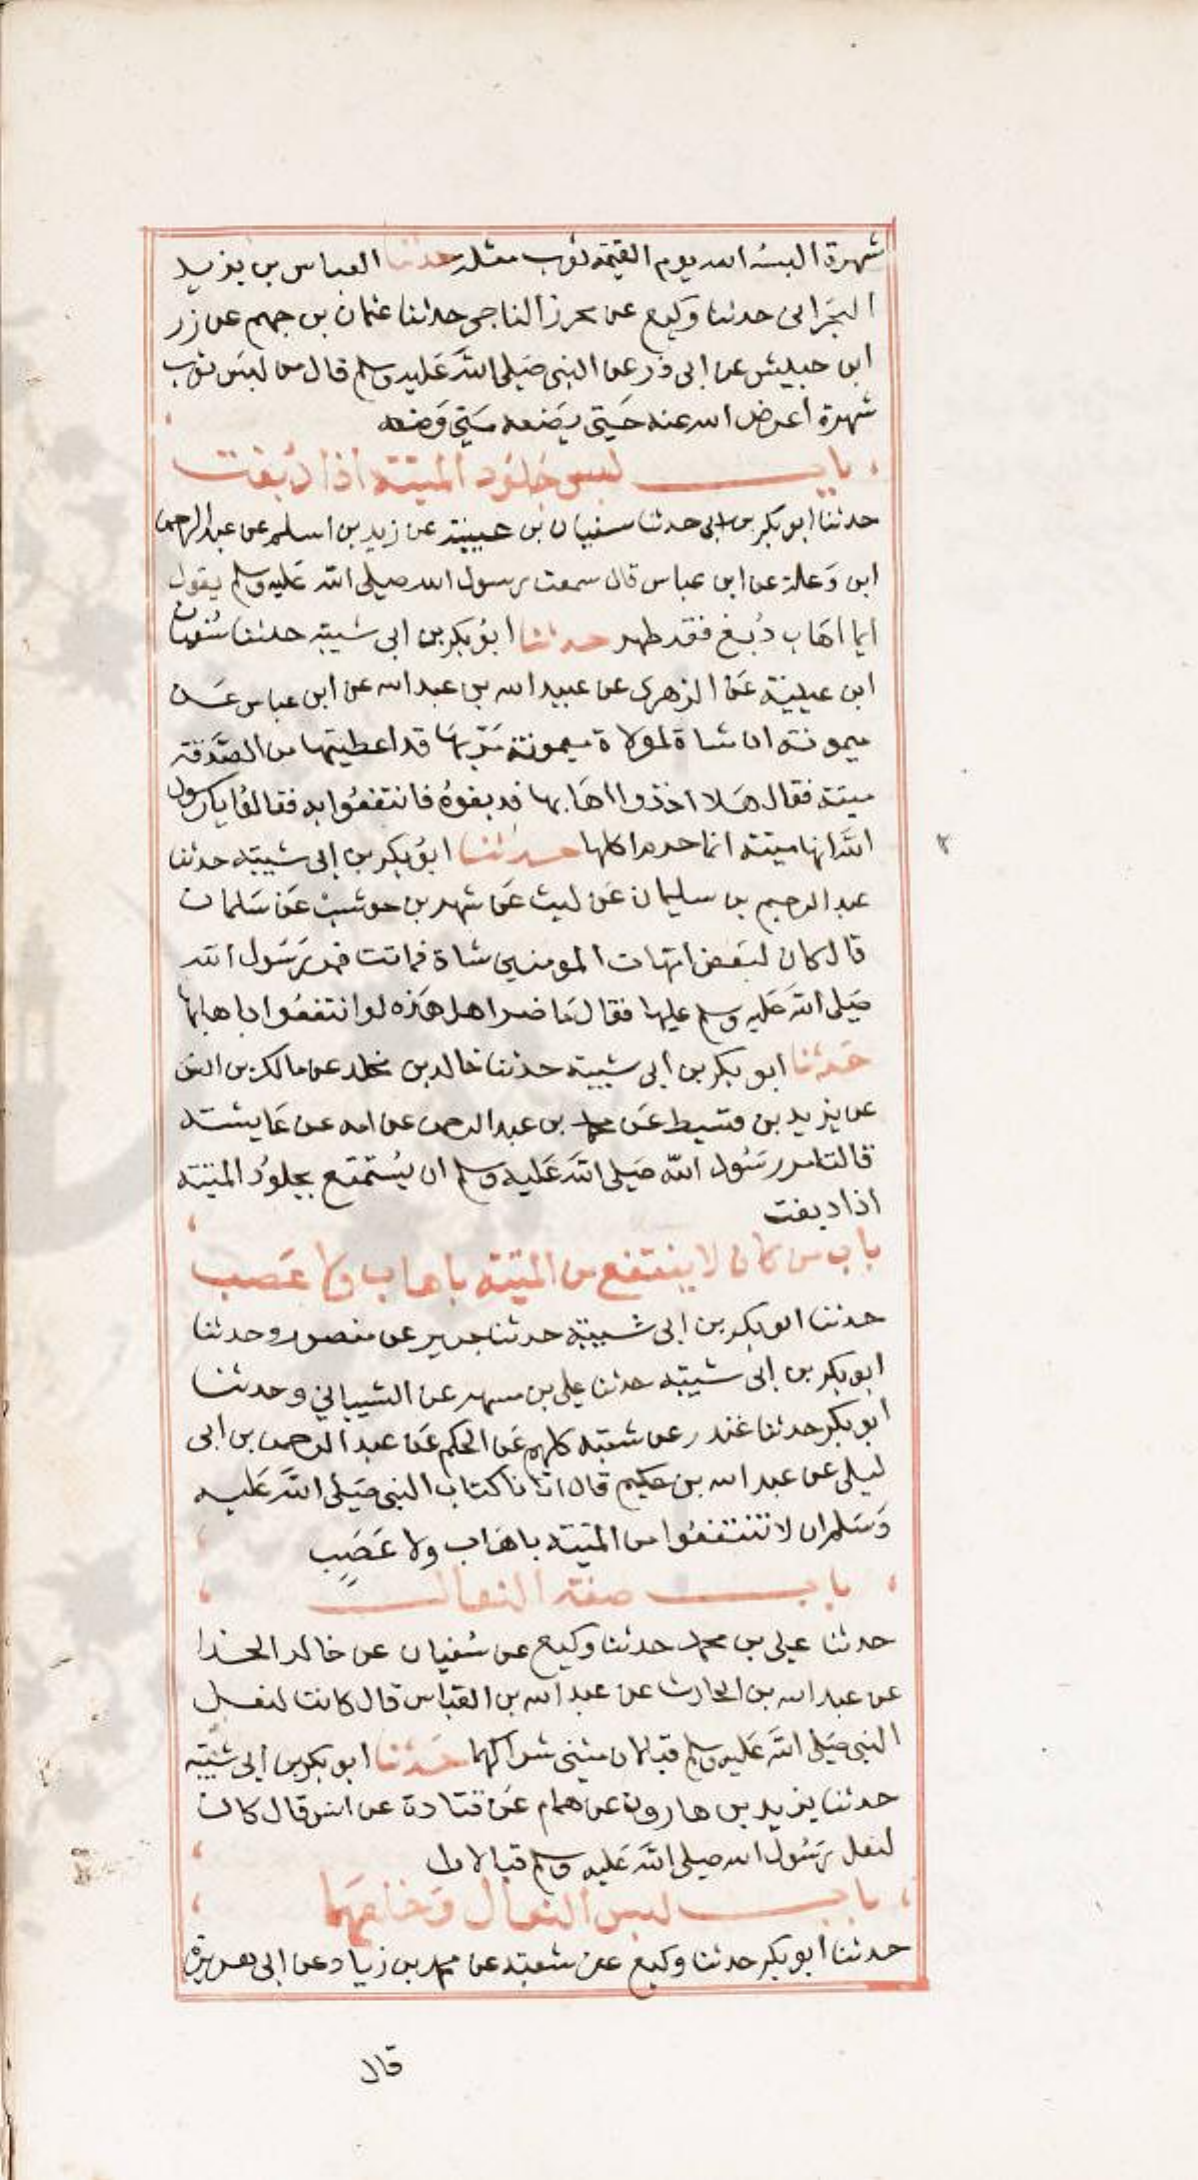 شهرة البسه الله يوم القيمة ثوب مثله حدثنا العباس بن يزيد
البحراني حدثنا وكيع عن محرز الناجي حدثنا عثمان بن جهم عن زر
ابن حبيش عن ابي ذر عن النبي صَلى الله عَليه وسلم قال من لبسَ ثوب
شهرة أعرض الله عنه حَتى يضَعه متى وَضعه
باب لبس جلوُد الميتة اذا دُبغت
حدثنا ابو بكر بن ابي حدثنا سفيان بن عيينة عن زيد بن اسلم عن عبد الرحمن
ابن وَعلة عن ابن عباس قال سمعت رسول الله صلى الله عَليه وسلم يقول
ايما اهَاب دُبغ فقد طهر حدثنا ابوُ بكر بن ابي شيبة حدثنا سُفيان
ابن عيينة عَن الزهري عن عبيد الله بن عبد الله عن ابن عباس عَن
ميمونة ان شاة لمولاة ميمونة مَرّ بهَا قد اعطيتها من الصَّدقة
ميتة فقال هَلا اخذوا اهَابها فدبغوهُ فانتفعُوا به فقالوُا يارسول
الله انها ميتة انما حرم اكلها حدثنا ابوُ بكر بن ابي شيبة حدثنا
عبد الرحيم بن سليمان عَن ليث عَن شهر بن حوشب عَن سَلمان
قال كان لبَعض امّهات المومنين شاة فماتت فمر رَسَول الله
صَلى الله عَليه وسلم عليها فقال مَا ضر اهل هَذه لو انتفعُوا باهابها
حَدثنا ابو بكر بن ابي شيبة حدثنا خالد بن مخلد عن مالك بن انس
عن يزيد بن قسيط عَن محمد بن عبد الرحمن عن امه عن عَايشة
قالت امر رسَول الله صَلى الله عَليه وسلم ان يُستمتع بجلوُد الميتة
اذا دبغت
باب من كان لا ينتفع من الميتة باهاب ولا عَصب
حدثنا ابو بكر بن ابي شيبة حدثنا جرير عن منصور وحدثنا
ابو بكر بن ابي شيبة حدثنا علي بن مسهر عن الشيباني وحدثنا
ابو بكر حدثنا غندر عن شعبة كلهم عَن الحكم عَن عبد الرحمن بن ابي
ليلى عن عبد الله بن عكيم قال اتانا كتاب النبي صَلى الله عَليه
وَسَلم ان لا تنتفعُوا من الميتة باهَاب ولا عَصَبٍ
باب صفة النعال
حدثنا علي بن محمد حدثنا وكيع عن سُفيان عن خالد الحذا
عن عبد الله بن الحارث عن عبد الله بن العَبّاس قال كانت لنعل
النبي صَلى الله عَليه وسلم قبالان مثنى شراكهما حَدثنا ابو بكر بن ابي شيبَة
حدثنا يزيد بن هارون عن همام عَن قتادة عن انس قال كان
لنعل رسُول الله صلى الله عَليه وسلم قبالان
باب لبس النعال وَخلعهمَا
حدثنا ابو بكر حدثنا وكيع عن شعبة عن محمد بن زياد عن ابي هريرة
قال